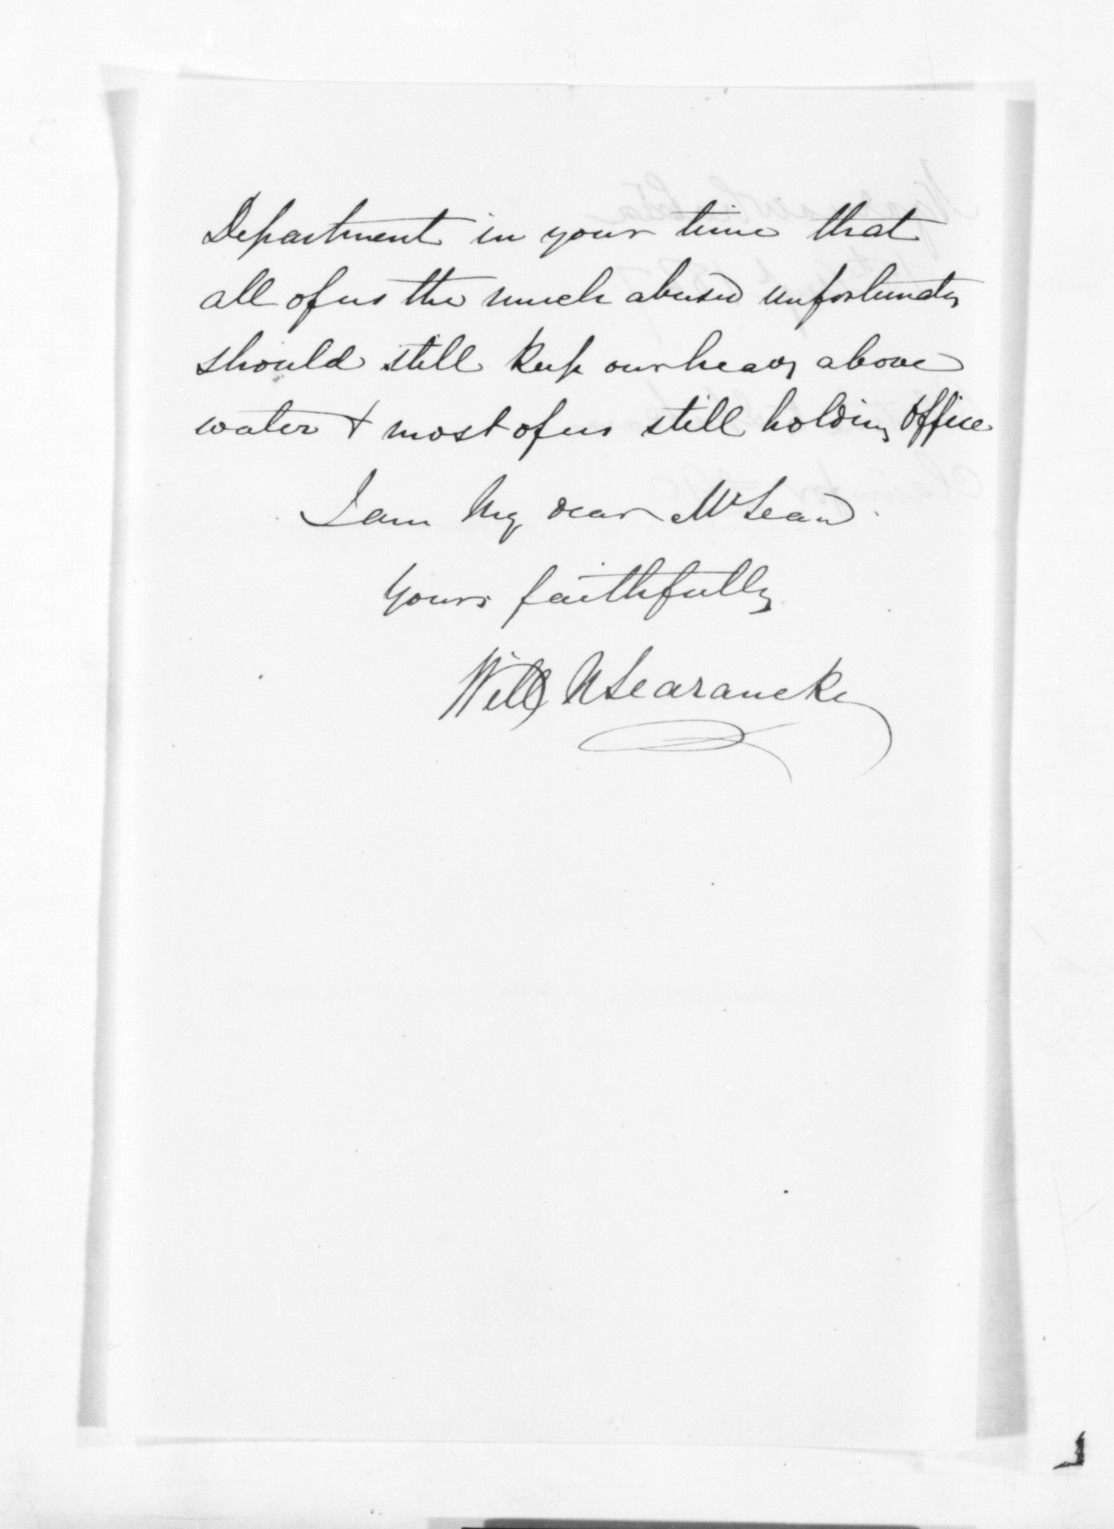 Department in your time that
all of us the much abused unfortunates
should still keep our heads above
water & most of us still holding office
I am my dear McLean
Yours faithfully
Will N Searancke